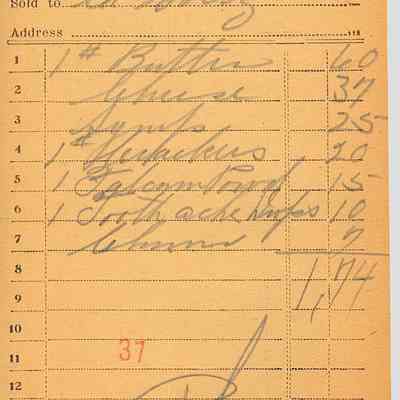 Sold to
Address 118
1 1 # Butter 60
2 Cheese 37
3 25
4 1 # Crackers 20
5 1 Talcum Powd 15
6 1 Tooth ache Drops 10
7 7
8 1,74
9
10
11 37
12